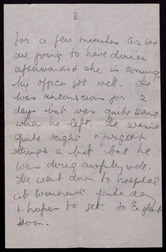 2
for a few minutes as we
are going to have dinner
afterwards & she is coming.
his officer got well. He
was unconscious for 2
days but was quite sane
when he left. He wasn't
quite right & forgot
things a bit but he
was doing awfully well.
He went down to hospital
at
& hopes to get to England
soon.